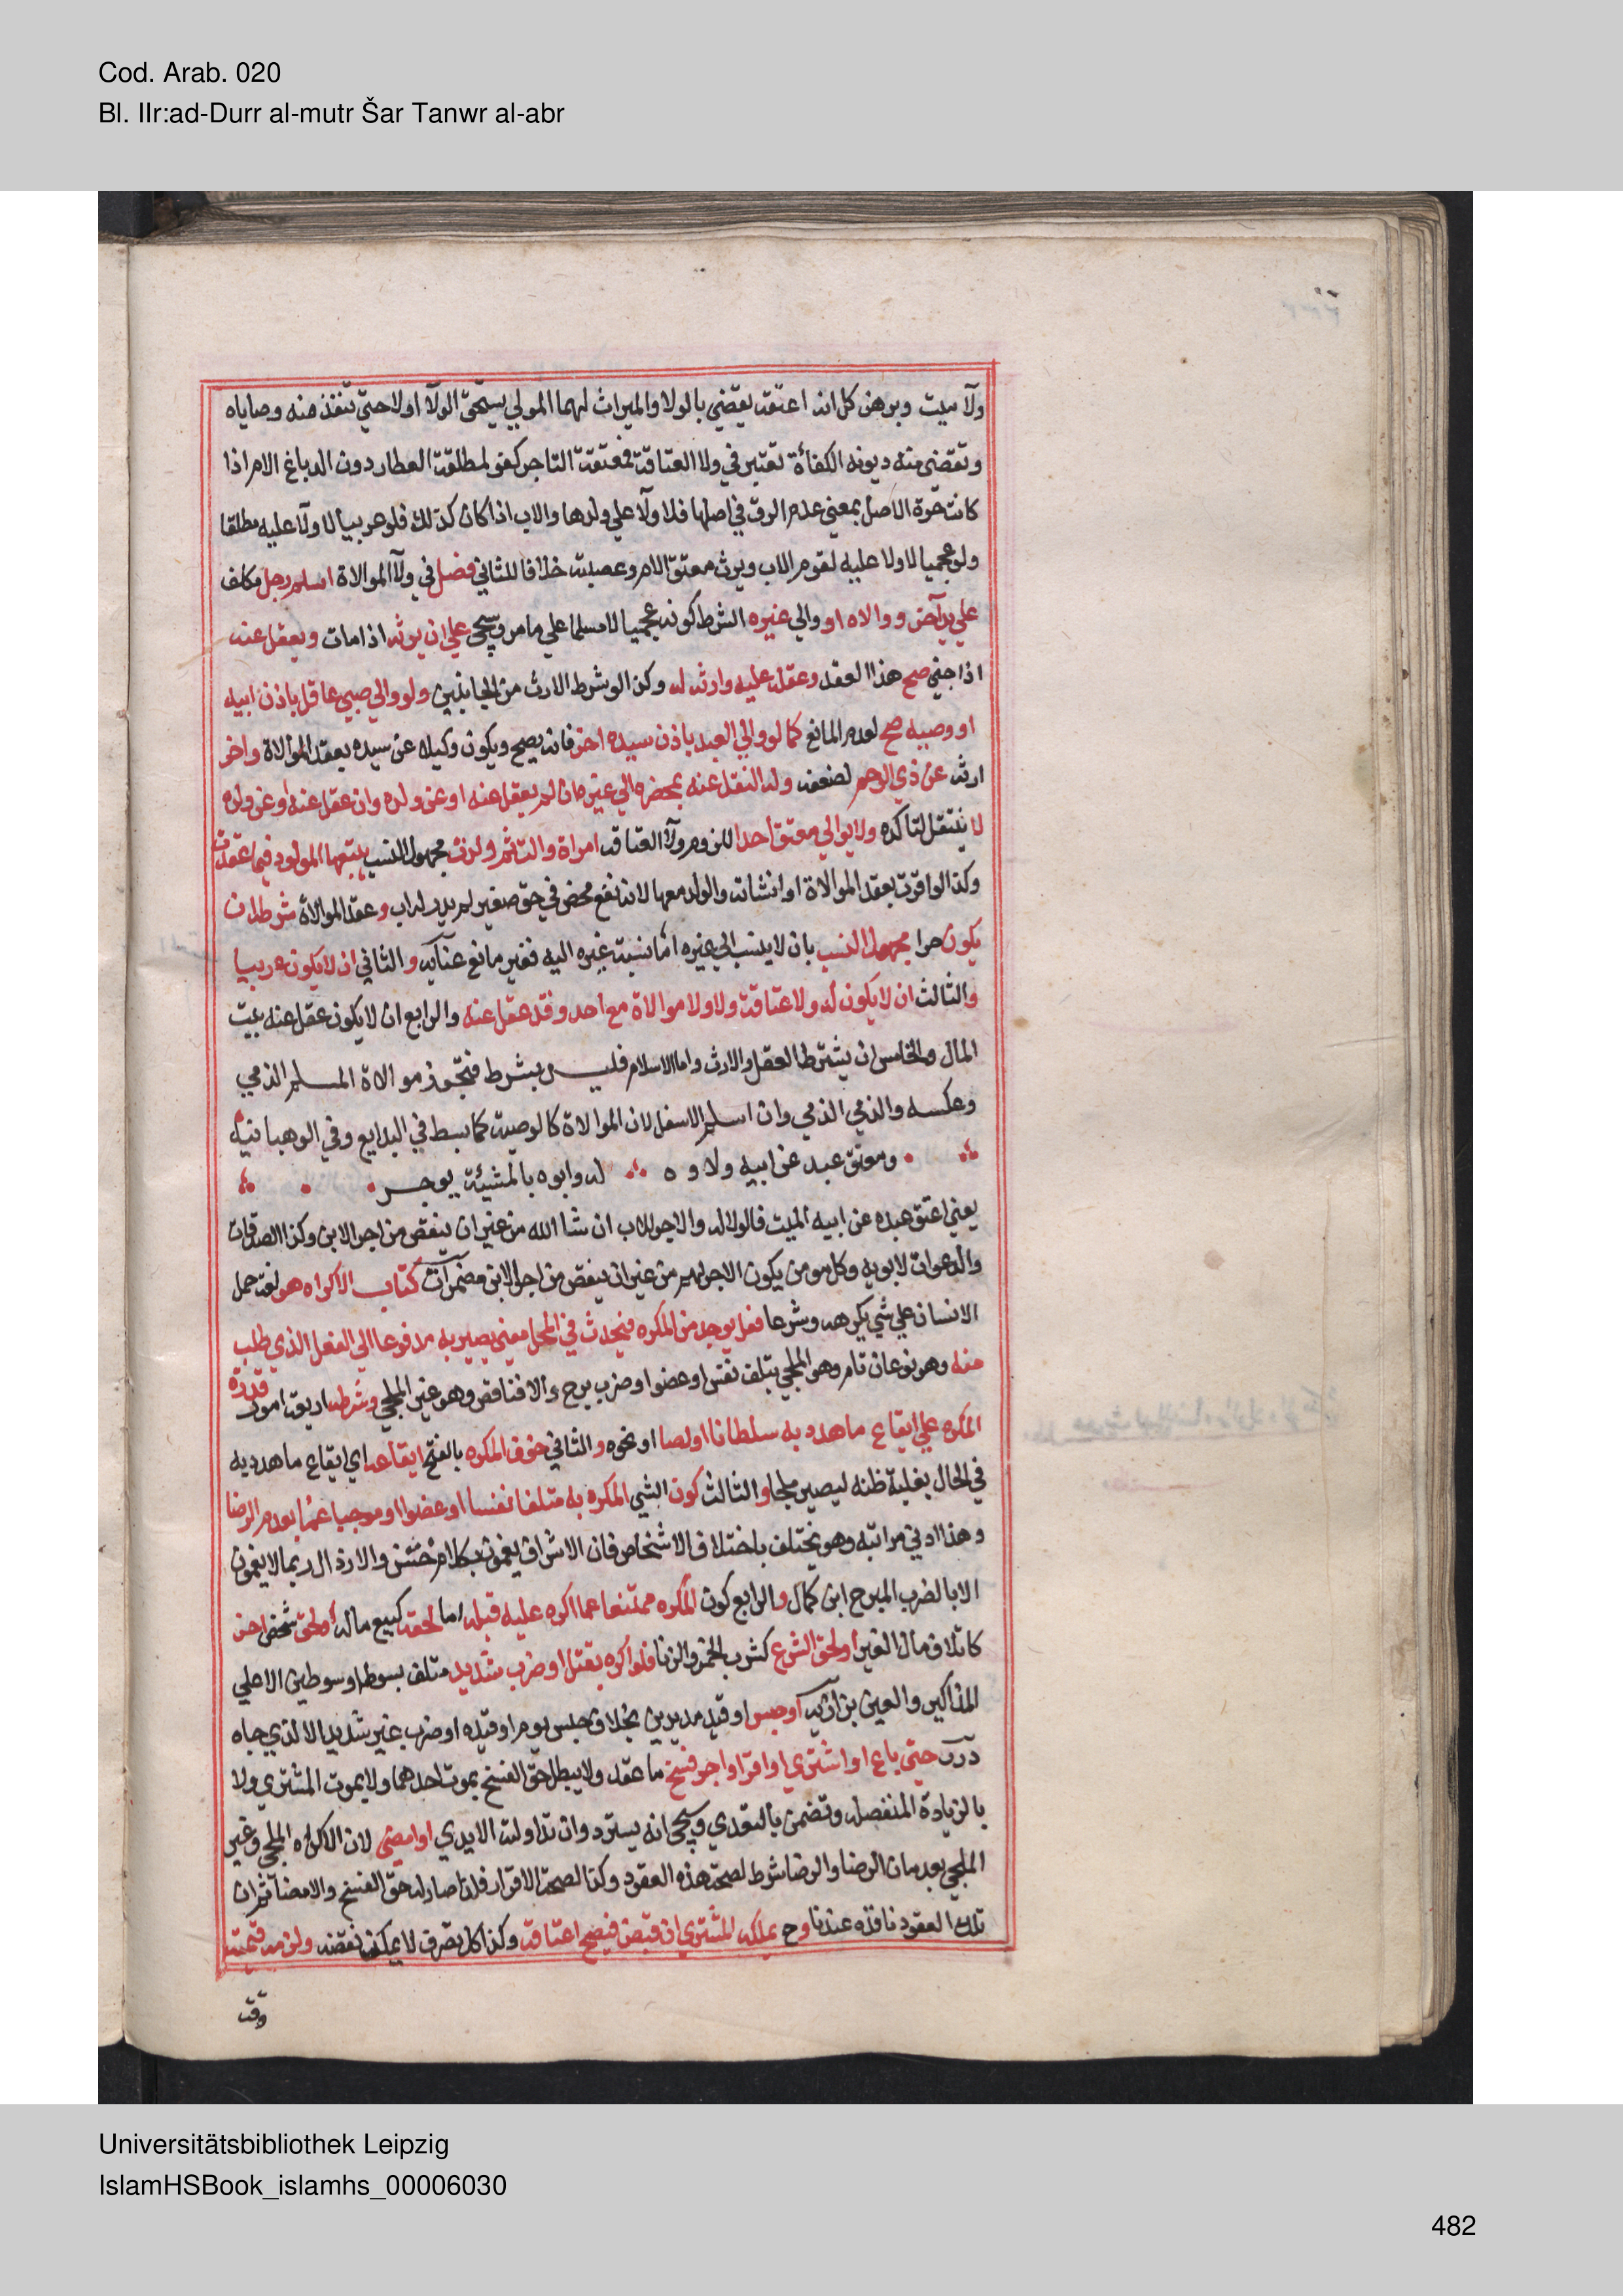 Cod. Arab. 020
Bl. IIr:ad-Durr al-mutr Šar Tanwr al-abr
ولآ ميت وبرهن كل انه اعتقه يقضي بالولا والميراث لهما المولي يستحق الولآ اولا حتي تنفذ منه وصاياه
وتقضى منه ديونه الكفأة تعتبر في ولا العتاقة فمعتقة التاجر كفو لمطلقة العطار دون الدباغ الام اذا
كانت حرة الاصل بمعني عدم الرق في اصلها فلا ولآ علي ولدها والاب اذا كان كذلك فلو عربيا لا ولآ عليه مطلقا
ولو عجميا لا ولا عليه لقوم الاب ويرث معتق الام وعصبته خلافا للثاني فصل في ولآ الموالاة اسلم رجل مكلف
علي يد آخر ووالاه او والي غيره الشرط كونه عجميا لا مسلما علي ما مر وسيجي علي ان يرثه اذا مات ويعقل عنه
اذا جني صح هذا العقد وعقله عليه وارثه له وكذا لو شرط الارث من الجانبين ولو والي صبي عاقل باذن ابيه
او وصيه صح لعدم المانع كما لو والي العبد باذن سيده اخر فانه يصح ويكون وكيلا عن سيده بعقد الموالاة واخر
ارثه عن ذي الرحم لضعفه وله النقل عنه بمحضره الي غيره ان لم يعقل عنه او عن ولده وان عقل عنه او عن ولده
لا ينتقل لتاكده ولا يوالي معتق احدا للزوم ولآ العتاقة امراة والت ثم ولدت مجهول النسب يتبعها المولود فيما عقدت
وكذا لو اقرت بعقد الموالاة او انشاته والولد معها لانه نفع محض في حق صغير لم يدر له اب وعقد الموالاة شرطه ان
يكون حرا مجهول النسب بان لا ينسب الي غيره اما نسبة غيره اليه فغير مانع عنآية والثاني ان لا يكون عربيا
والثالث ان لا يكون له ولا عتاقة ولا ولا موالاة مع احد وقد عقل عنه والرابع ان لا يكون عقل عنه بيت
المال والخامس ان يشترط العقل والارث واما الاسلام فليس بشرط فتجوز موالاة المسلم الذمي
وعكسه والذمي الذمي وان اسلم الاسفل لان الموالاة كالوصية كما بسط في البدايع وفي الوهبانية
ومعتق عبد عن ابيه ولاوه له وابوه بالمشيئة يوجر
يعني اعتق عبده عن ابيه الميت فالولا له والاجر للاب ان شا الله من غير ان ينقص من اجر الابن وكذا الصدقات
والدعوات لابويه وكل مومن يكون الاجر لهم من غير ان ينقص من اجر الابن مضمرآت كتاب الاكراه هو لغة حمل
الانسان علي شي يكرهه وشرعا فعل يوجد من المكره فيحدث في المحل معني يصير به مدفوعا الي الفعل الذي طلب
منه وهو نوعان تام وهو الملجي بتلف نفس او عضو او ضرب مبرح والا فناقص وهو غير الملجي وشرطه اربعة امور قدرة
المكره علي ايقاع ما هدد به سلطانا او لصا او نحوه والثاني خوف المكره بالفتح ايقاعه اي ايقاع ما هدد به
في الحال بغلبة ظنه ليصير ملجا والثالث كون الشي المكره به متلفا نفسا او عضوا او موجبا غما يعدم الرضا
وهذا ادني مراتبه وهو يختلف باختلاف الاشخاص فان الاشراف يغمون بكلام خشن والارذال ربما لا يغمون
الا بالضرب المبرح ابن كمال والرابع كون المكره ممتنعا عما اكره عليه قبله اما لحقه كبيع ماله او لحق شخص اخر
كاتلاف مال الغير او لحق الشرع كشرب الخمر والزنا فلو اكره بقتل او ضرب شديد متلف بسوط او سوطين الا علي
المذاكير والعين بزازية او حبس او قيد مديدين بخلاف حبس يوم او قيده او ضرب غير شديد الا لذي جاه
درر حتي باع او اشتري او اقر او اجر فسخ ما عقد ولا يبطل حق الفسخ بموت احدهما ولا بموت المشتري ولا
بالزيادة المنفصلة وتضمن بالتعدي وسيجي انه يسترد وان تداولته الايدي او امضي لان الاكراه الملجي وغير
الملجي يعدمان الرضا والرضا شرط لصحة هذه العقود وكذا لصحة الاقرار فلذا صار له حق الفسخ والامضا ثم ان
تلك العقود نافذه عندنا وح يملكه المشتري ان قبض فيصح اعتاقه وكذا كل تصرف لا يمكن نقضه ولزمه قيمته
وقت
Universitätsbibliothek Leipzig
IslamHSBook_islamhs_00006030
482